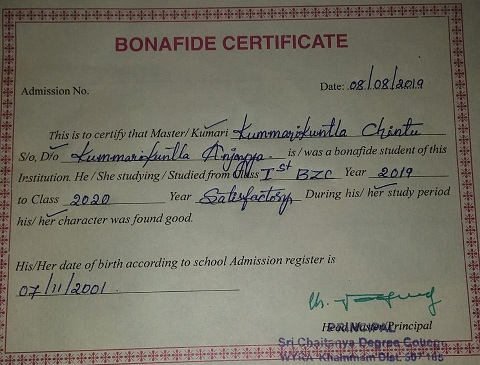 BONAFIDE CERTIFICATE
Admission No. Date: 08/08/2019
This is to certify that Master/ Kumari Kummarikuntla Chintu
S/o, D/o Kummarikuntla Anjayya. is / was a bonafide student of this
Institution. He / She studying / Studied from Class Ist BZC Year 2019
to Class 2020 Year Satisfactory During his / her study period
his/ her character was found good.
His/Her date of birth according to school Admission register is
07/11/2001
Head Master/Principal
PRINCIPAL
Sri Chaitanya Degree
WYRA Khammam Dist. 507 165